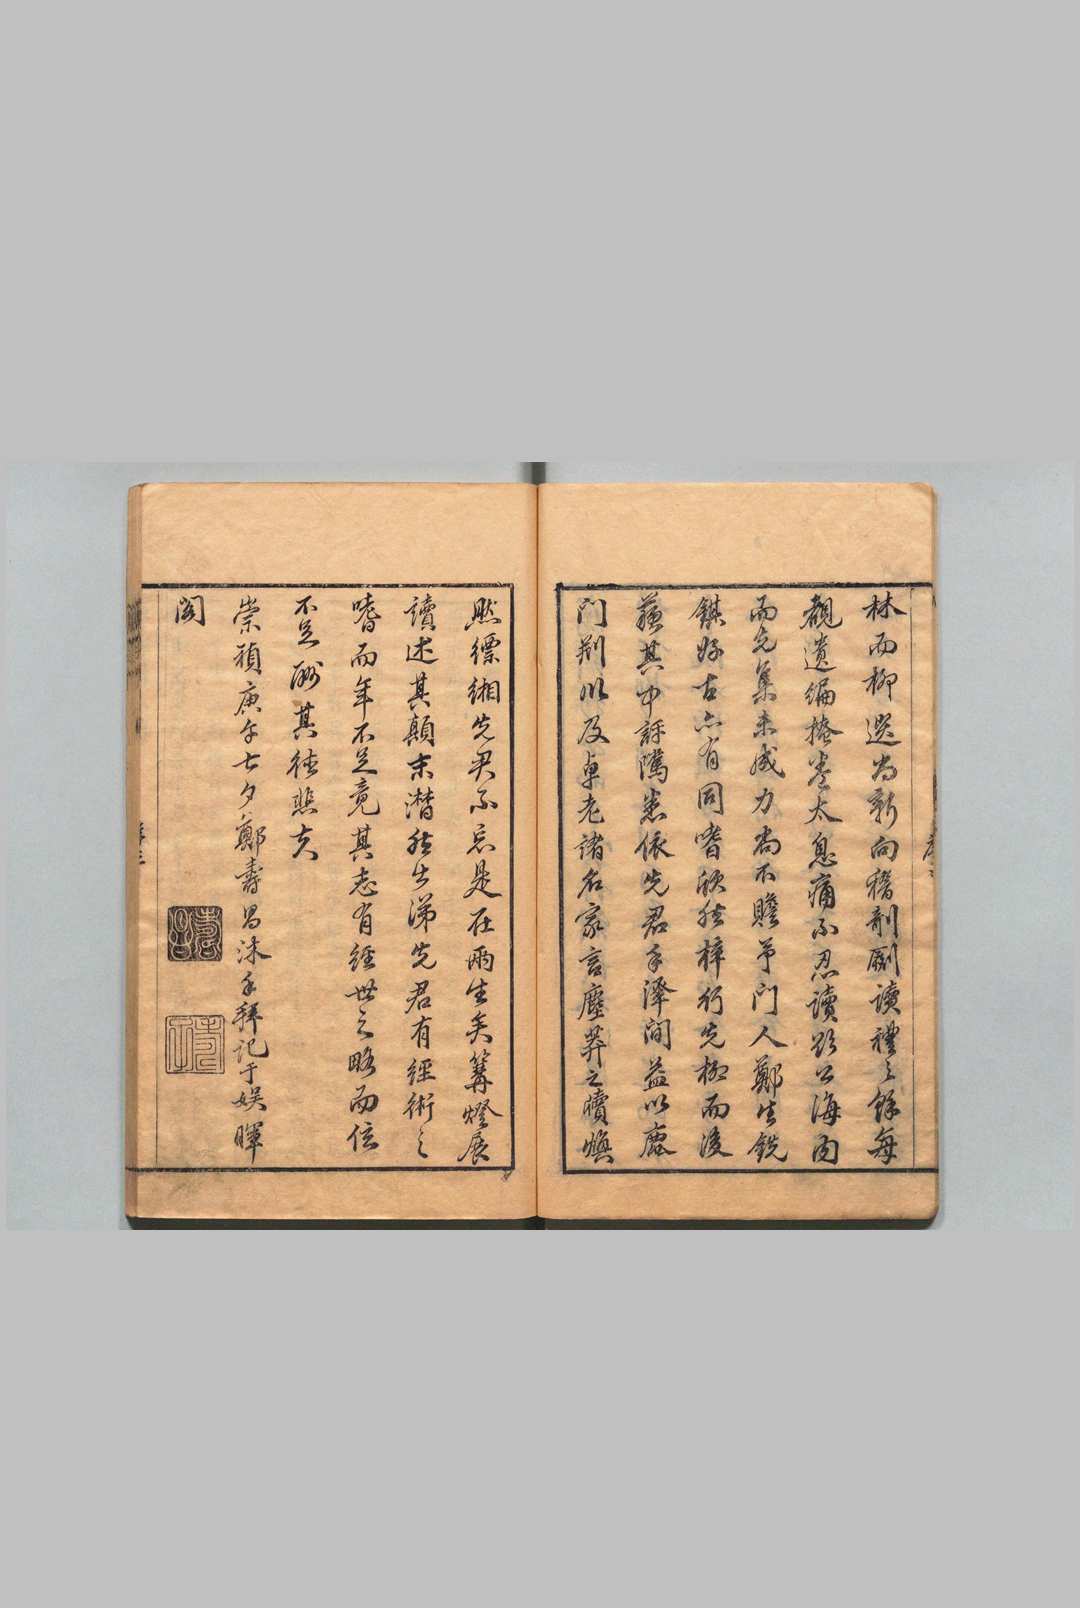 林而柳選尚新向稽剞劂讀禮之餘每
覩遺編捲卷太息痛不忍讀距公海內
而先集未成力尚不贍予門人鄭生銑
鎂好古亦有同嗜欣然梓行先柳而後
蘇其中評隲悉依先君手澤間益以鹿
門荊川及卓老諸名家言塵莽之牘煥
然縹緗先君不忘是在兩生矣篝燈展
讀述其顛末潸然出涕先君有經術之
嗜而年不足竟其志有經世之略而位
不足酬其德悲夫
崇禎庚午七夕鄭壽昌沐手拜記于娛暉
閣